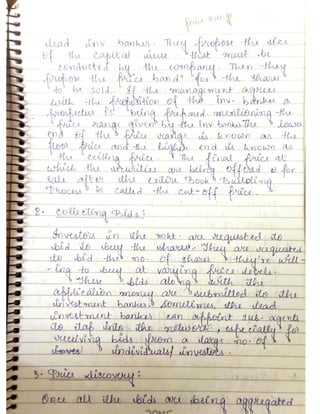 price range
lead inv banker. They propose the size
of the capital issue that must be
conducted by the company. Then they
propose the price band for the shares
to be sold. If the management agrees
with the proposition of the inv. banker a
prospectus is being prepared mentioning the
price range given by the inv banker. The lower
end of the price range is known as the
floor price and the higher end is known as
the ceiling price. The final price at
which the securities are being offered for
sale after the entire Book Building
Process is called the cut-off price.
2- Collecting Bids:
Investors in the mkt. are requested to
bid to buy the shares. They are requested
to bid the no. of shares they're will-
-ing to buy at varying price levels.
Their bids along with the
application money are submitted to the
investment banker. Sometimes the lead
investment banker can appoint sub-agents
to tap into the network, especially for
receiving bids from a large no. of
individuals/investors.
3- Price Discovery:
Once all the bids are being aggregated